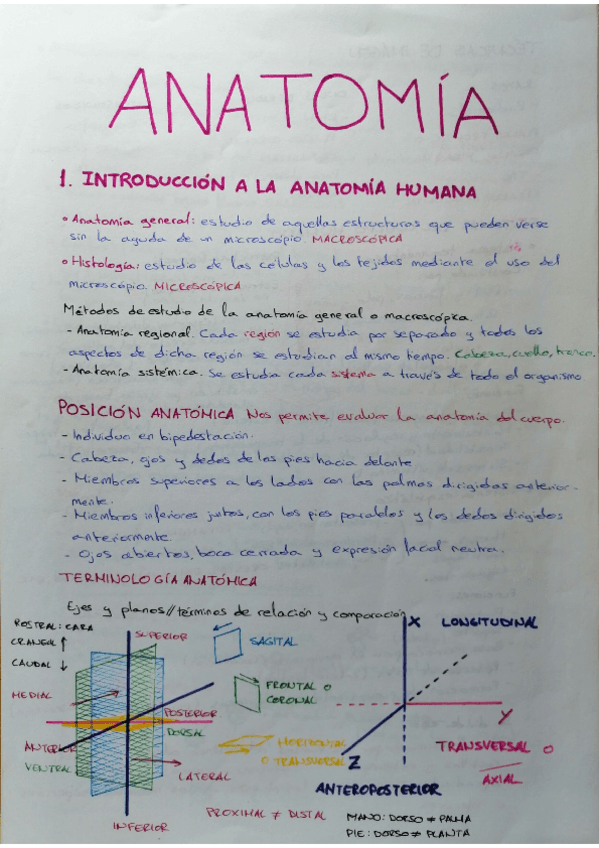 ANATOMÍA
1. INTRODUCCIÓN A LA ANATOMÍA HUMANA
• Anatomía general: estudio de aquellas estructuras que pueden verse
sin la ayuda de un microscópio. MACROSCÓPICA
• Histología: estudio de las células y los tejidos mediante el uso del
microscópio. MICROSCÓPICA
Métodos de estudio de la anatomía general o macroscópica.
- Anatomía regional. Cada región se estudia por separado y todos los
aspectos de dicha región se estudian al mismo tiempo. Cabeza, cuello, tronco.
- Anatomía sistémica. Se estudia cada sistema a través de todo el organismo.
POSICIÓN ANATÓMICA Nos permite evaluar la anatomía del cuerpo.
- Individuo en bipedestación.
- Cabeza, ojos y dedos de los pies hacia delante
- Miembros superiores a los lados con las palmas dirigidas anterior-
mente.
- Miembros inferiores juntos, con los pies paralelos y los dedos dirigidos
anteriormente.
- Ojos abiertos, boca cerrada y expresión facial neutra.
TERMINOLOGÍA ANATÓMICA
Ejes y planos//términos de relación y comparación
ROSTRAL: CARA
CRANEAL ↑
CAUDAL ↓
MEDIAL
ANTERIOR
VENTRAL
SUPERIOR
POSTERIOR
DORSAL
LATERAL
INFERIOR
SAGITAL
FRONTAL O
CORONAL
HORIZONTAL
O TRANSVERSAL
PROXIMAL ≠ DISTAL
X LONGITUDINAL
Y
TRANSVERSAL O
AXIAL
Z
ANTEROPOSTERIOR
MANO: DORSO ≠ PALMA
PIE: DORSO ≠ PLANTA